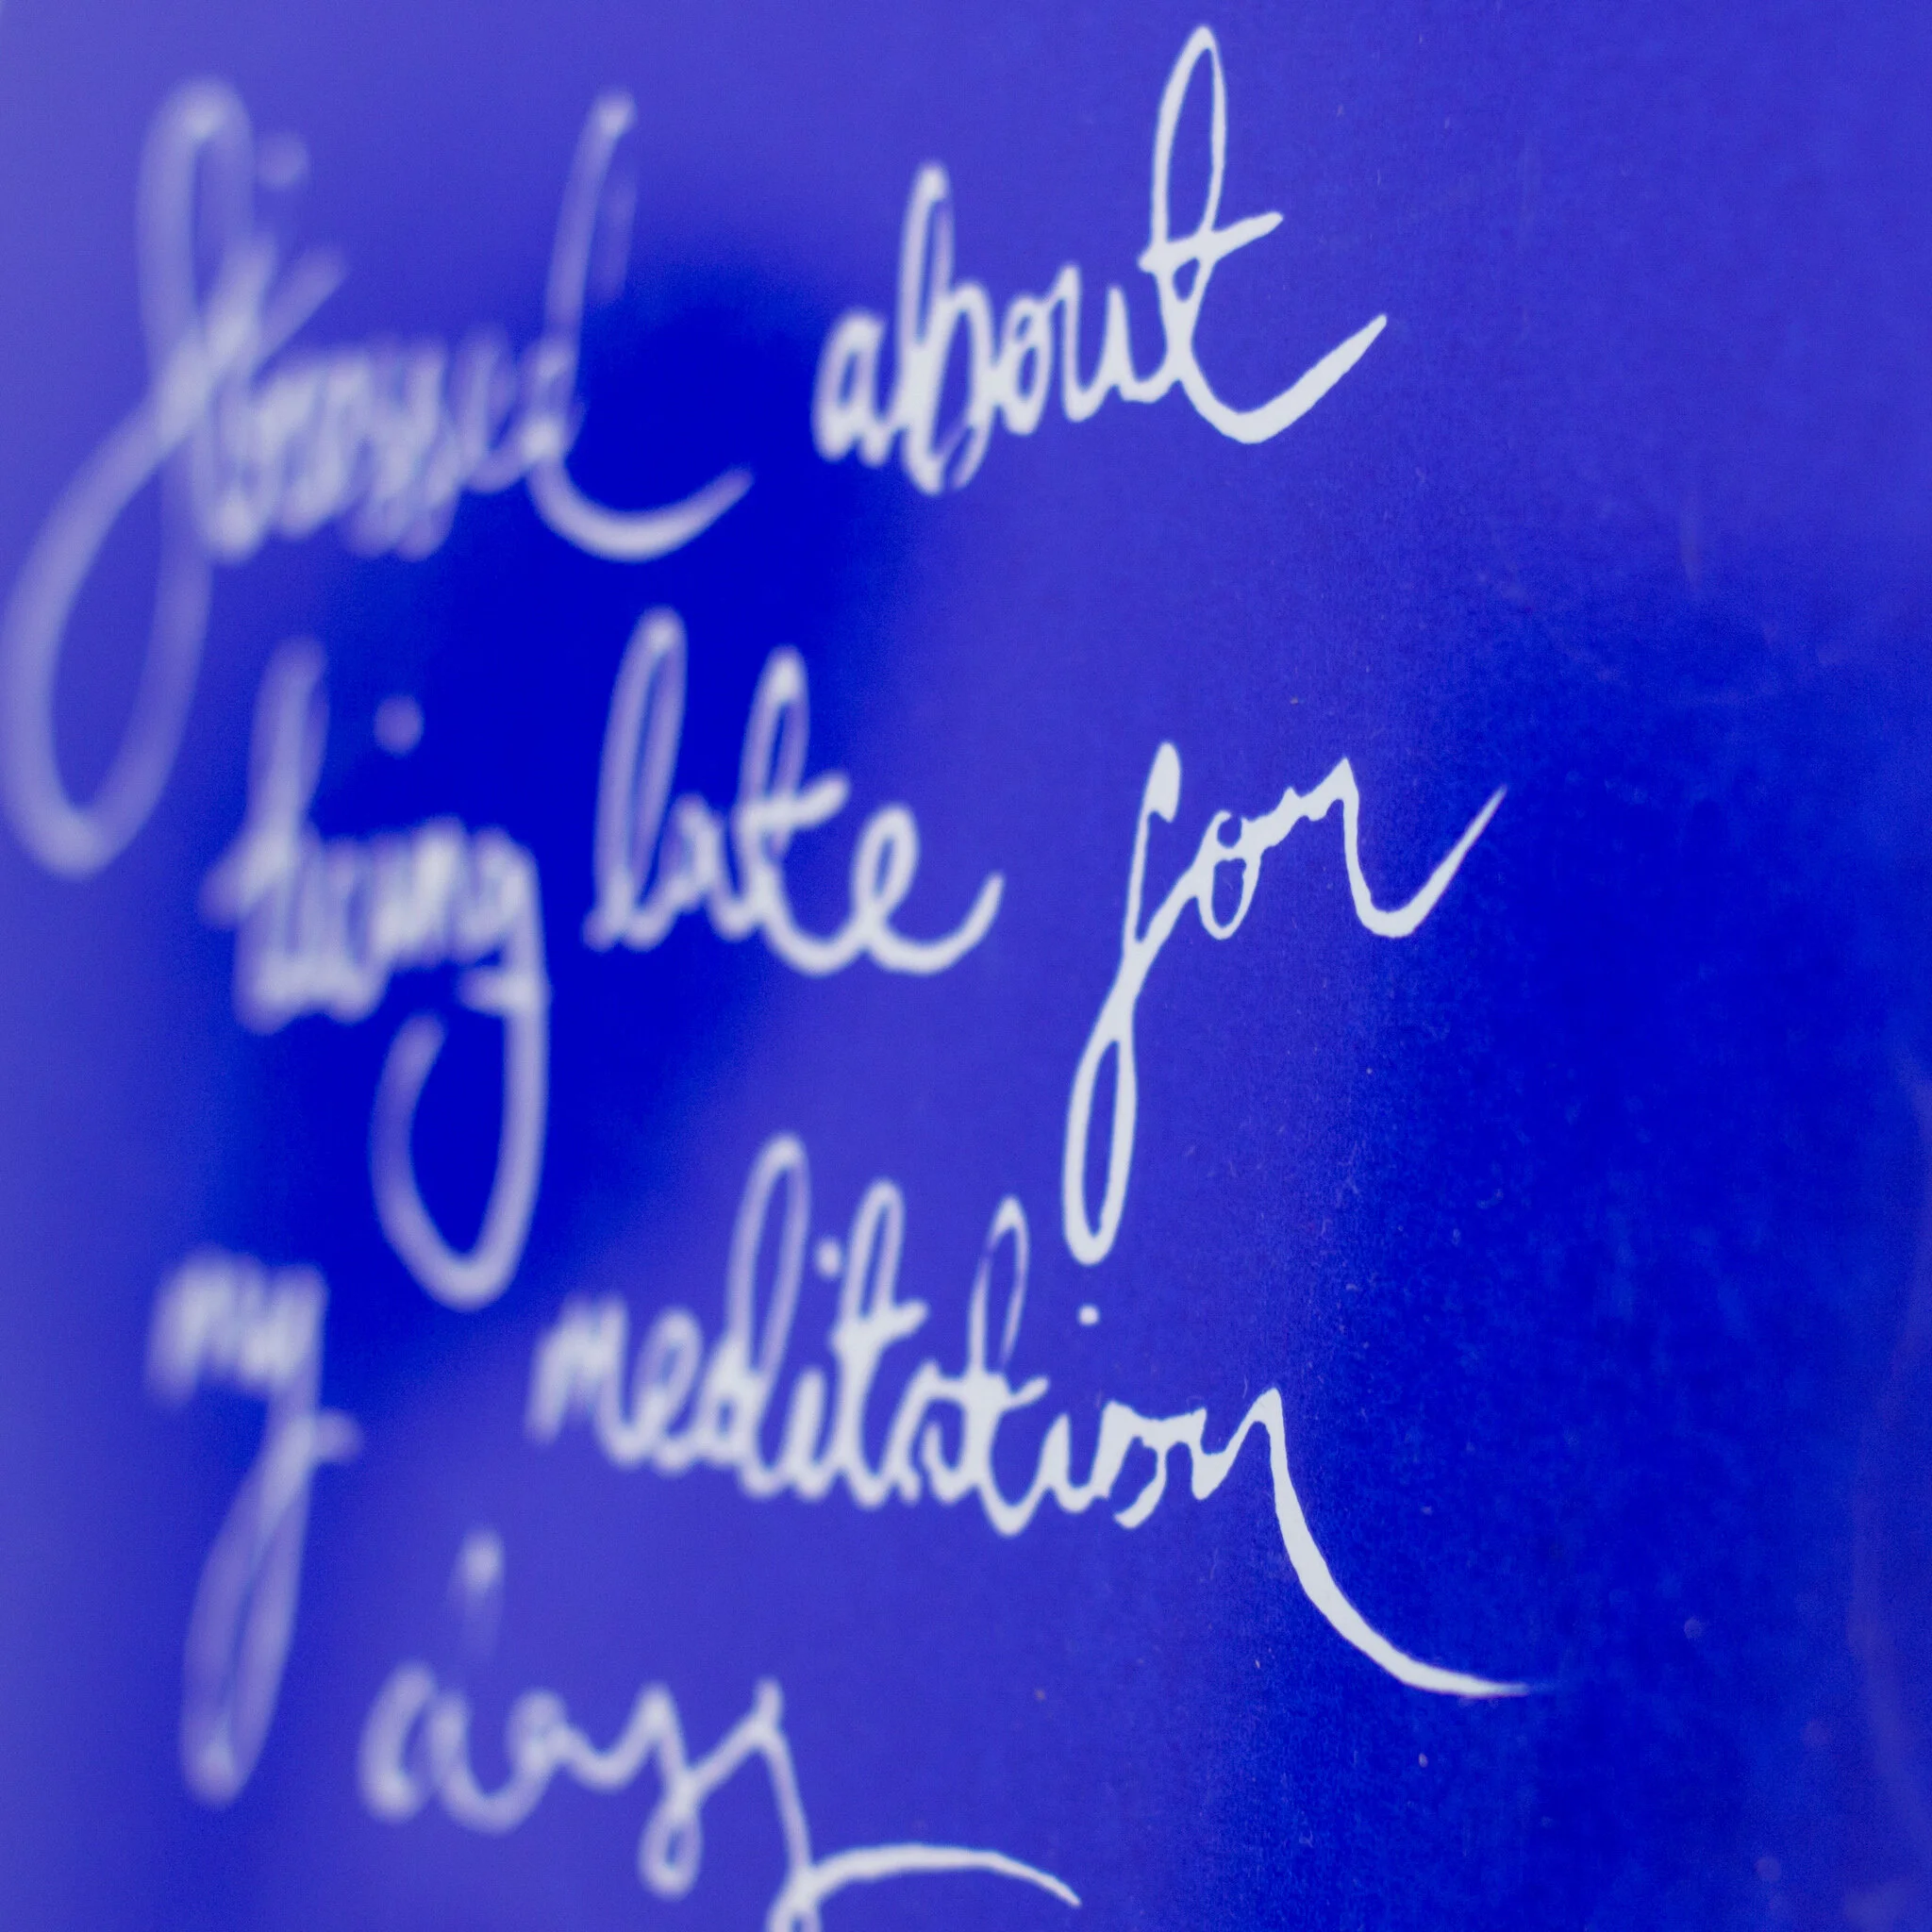 Stressed about
being late for
my meditation
class